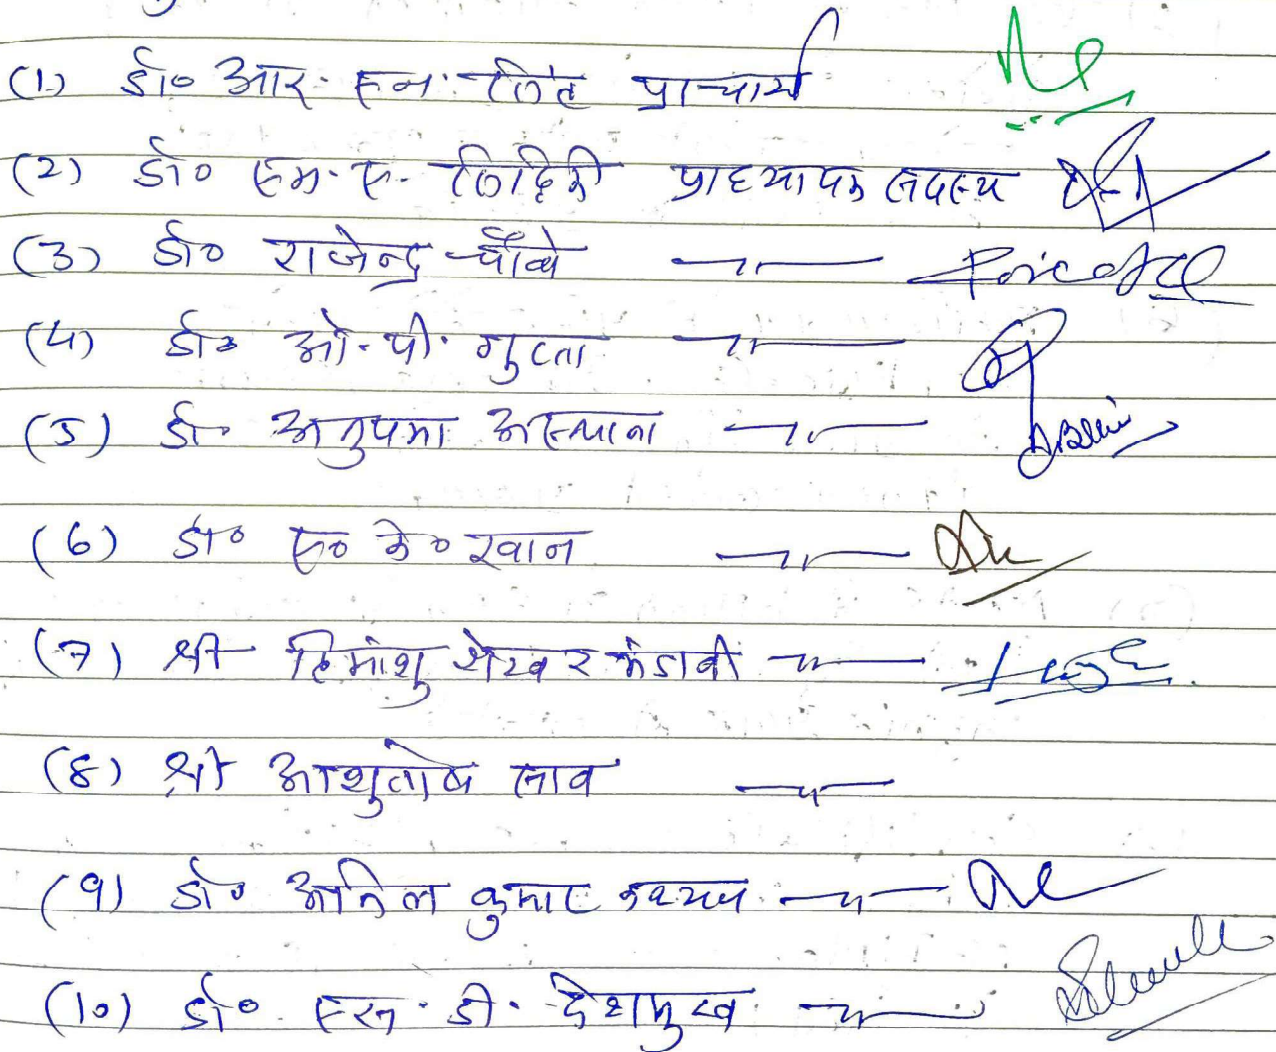 (1) डॉ० आर. एन. सिंह प्राचार्य
(2) डॉ० एम. ए. सिद्दिकी प्राध्यापक सदस्य
(3) डॉ० राजेन्द्र चौबे —〃—
(4) डॉ० ओ. पी. गुप्ता —〃—
(5) डॉ. अनुपमा अस्थाना —〃—
(6) डॉ० ए० के० खान —〃—
(7) श्री हिमांशु शेखर मंडावी —〃—
(8) श्री आशुतोष साव —〃—
(9) डॉ० अनिल कुमार कश्यप —〃—
(10) डॉ० एस. डी. देशमुख —〃—